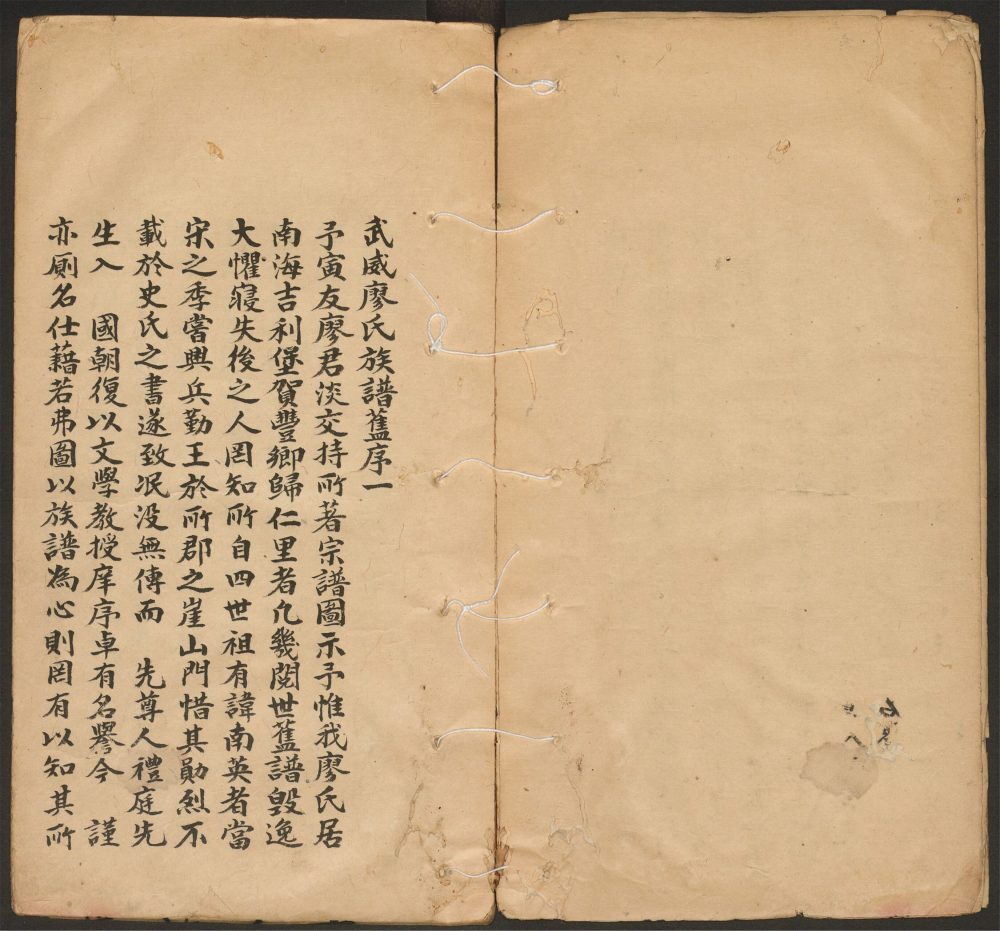 武威廖氏族譜舊序一
予寅友廖君淡交持所著宗譜圖示予惟我廖氏居
南海吉利堡賀豐鄉歸仁里者凢幾閱世舊譜毀逸
大懼寢失後之人罔知所自四世祖有諱南英者當
宋之季嘗興兵勤王於所郡之崖山門惜其勛烈不
載於史氏之書遂致泯没無傳而　先尊人禮庭先
生入　國朝復以文學教授庠序卓有名譽今　謹
亦厠名仕藉若弗圖以族譜為心則罔有以知其所